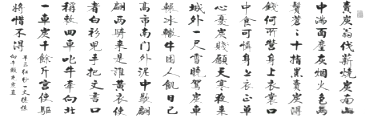 賣炭翁伐薪燒炭南山
中滿面塵灰煙火色兩
鬢蒼々十指黑賣炭得
錢何所營身上衣裳口
中食可憐身上衣正單
心憂炭賤願天寒夜來
城外一尺雪曉駕炭車
輾冰轍牛困人飢日已
高市南門外泥中歇翩
翩兩騎來是誰黃衣使
者白衫兒手把文書口
稱敕迴車叱牛牽向北
一車炭千餘斤宮使驅
將惜不得
半疋紅紗一丈綾繫
向牛頭充炭直